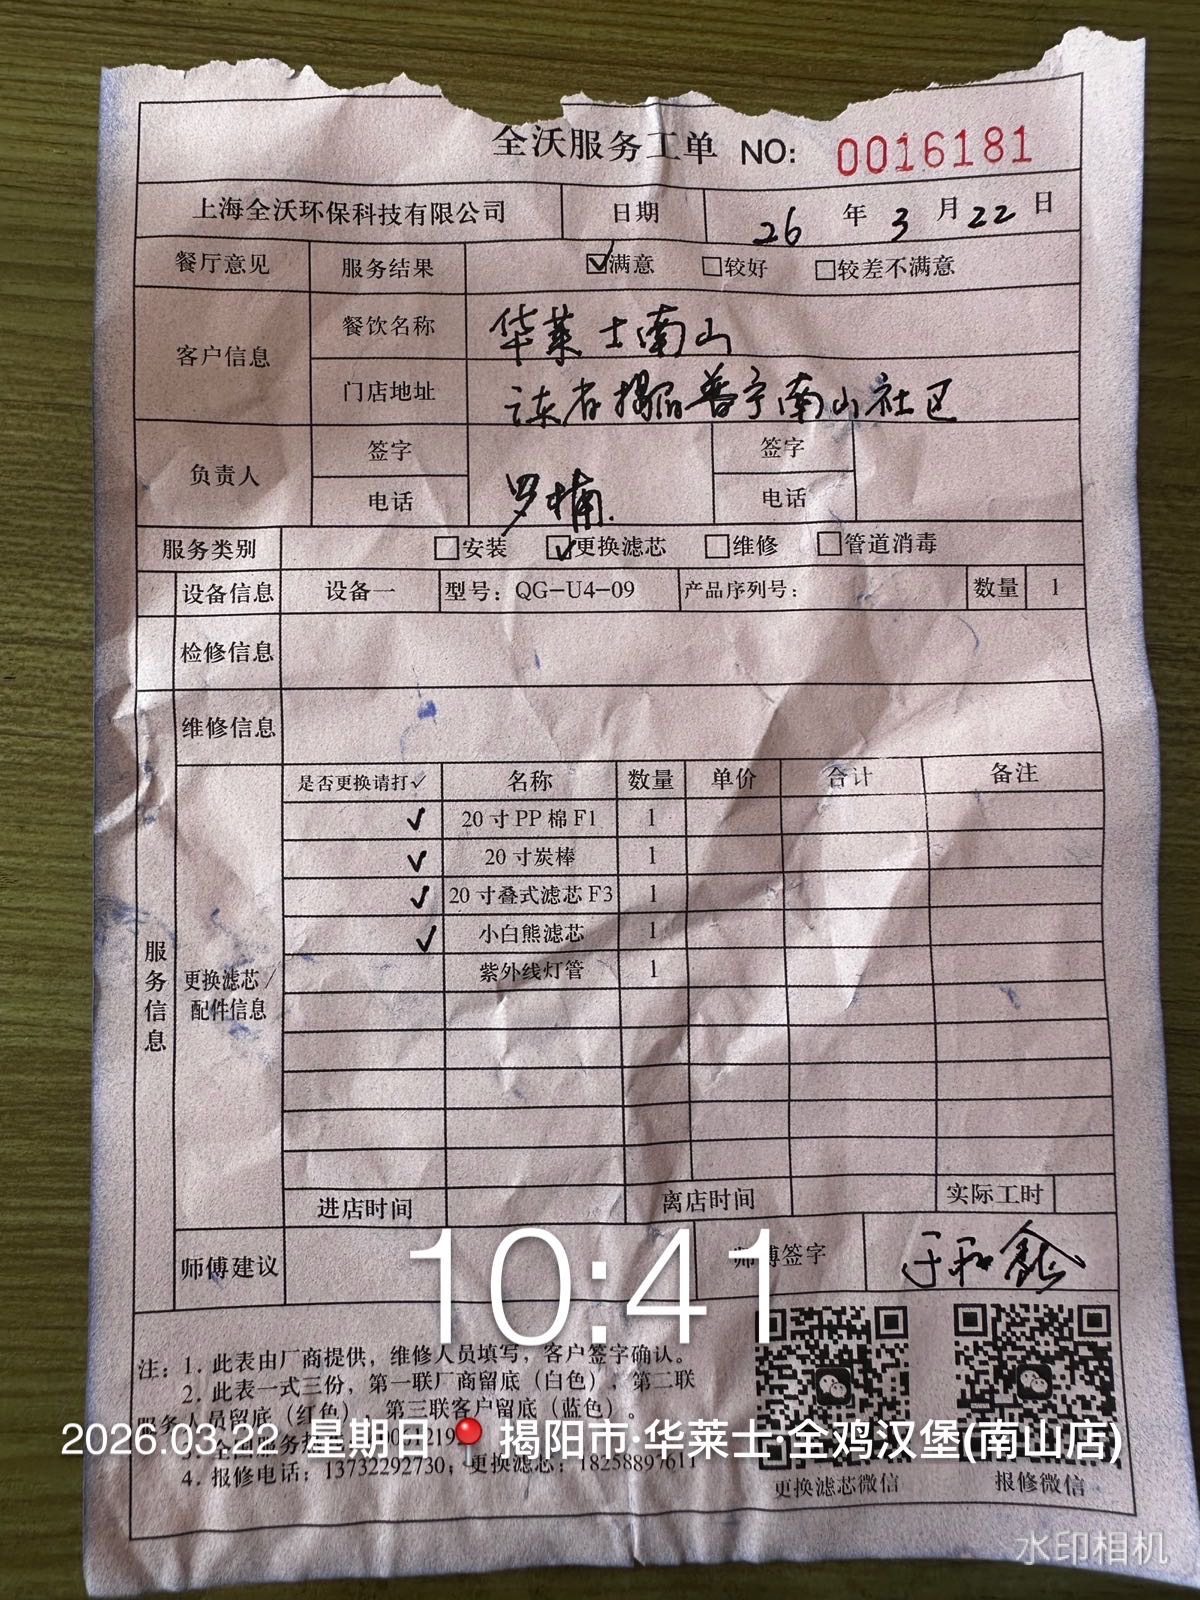 全沃服务工单 NO: 0016181
上海全沃环保科技有限公司 日期 26 年 3 月 22 日
餐厅意见 服务结果 ☑满意 □较好 □较差不满意
客户信息 餐饮名称 华莱士南山
门店地址 广东省揭阳普宁南山社区
负责人 签字 罗楠 签字
电话 电话
服务类别 □安装 ☑更换滤芯 □维修 □管道消毒
设备信息 设备一 型号：QG-U4-09 产品序列号： 数量 1
检修信息
维修信息
服务信息
更换滤芯/
配件信息
是否更换请打✓ 名称 数量 单价 合计 备注
✓ 20寸PP棉F1 1
✓ 20寸炭棒 1
✓ 20寸叠式滤芯F3 1
✓ 小白熊滤芯 1
紫外线灯管 1
进店时间 离店时间 实际工时
师傅建议 师傅签字
10:41
注：1. 此表由厂商提供，维修人员填写，客户签字确认。
2. 此表一式三份，第一联厂商留底（白色），第二联
服务人员留底（红色），第三联客户留底（蓝色）。
2026.03.22 星期日 揭阳市·华莱士·全鸡汉堡(南山店)
4. 报修电话：13732292730；更换滤芯：18258897611
更换滤芯微信 报修微信
水印相机